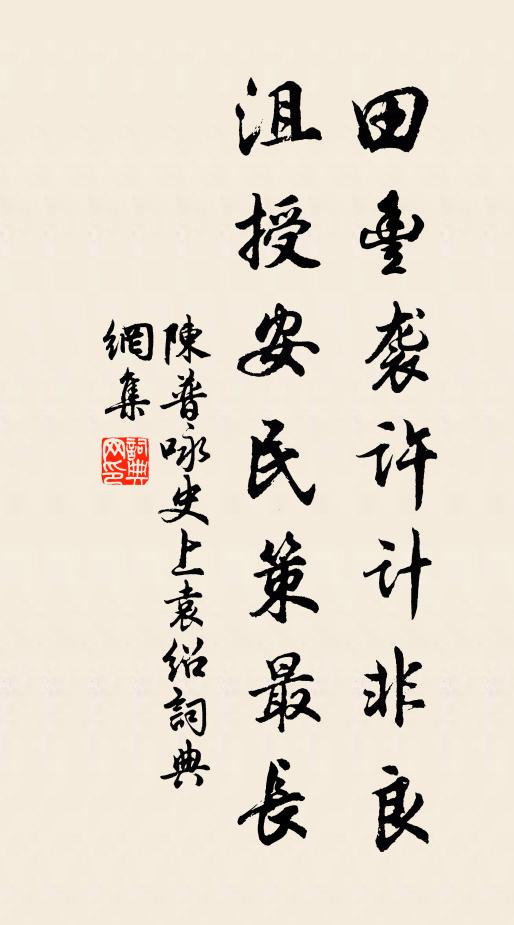 田豊袭許計非良
沮授安民策最長
陳普咏史上袁紹詞典
網集
詞典
网印